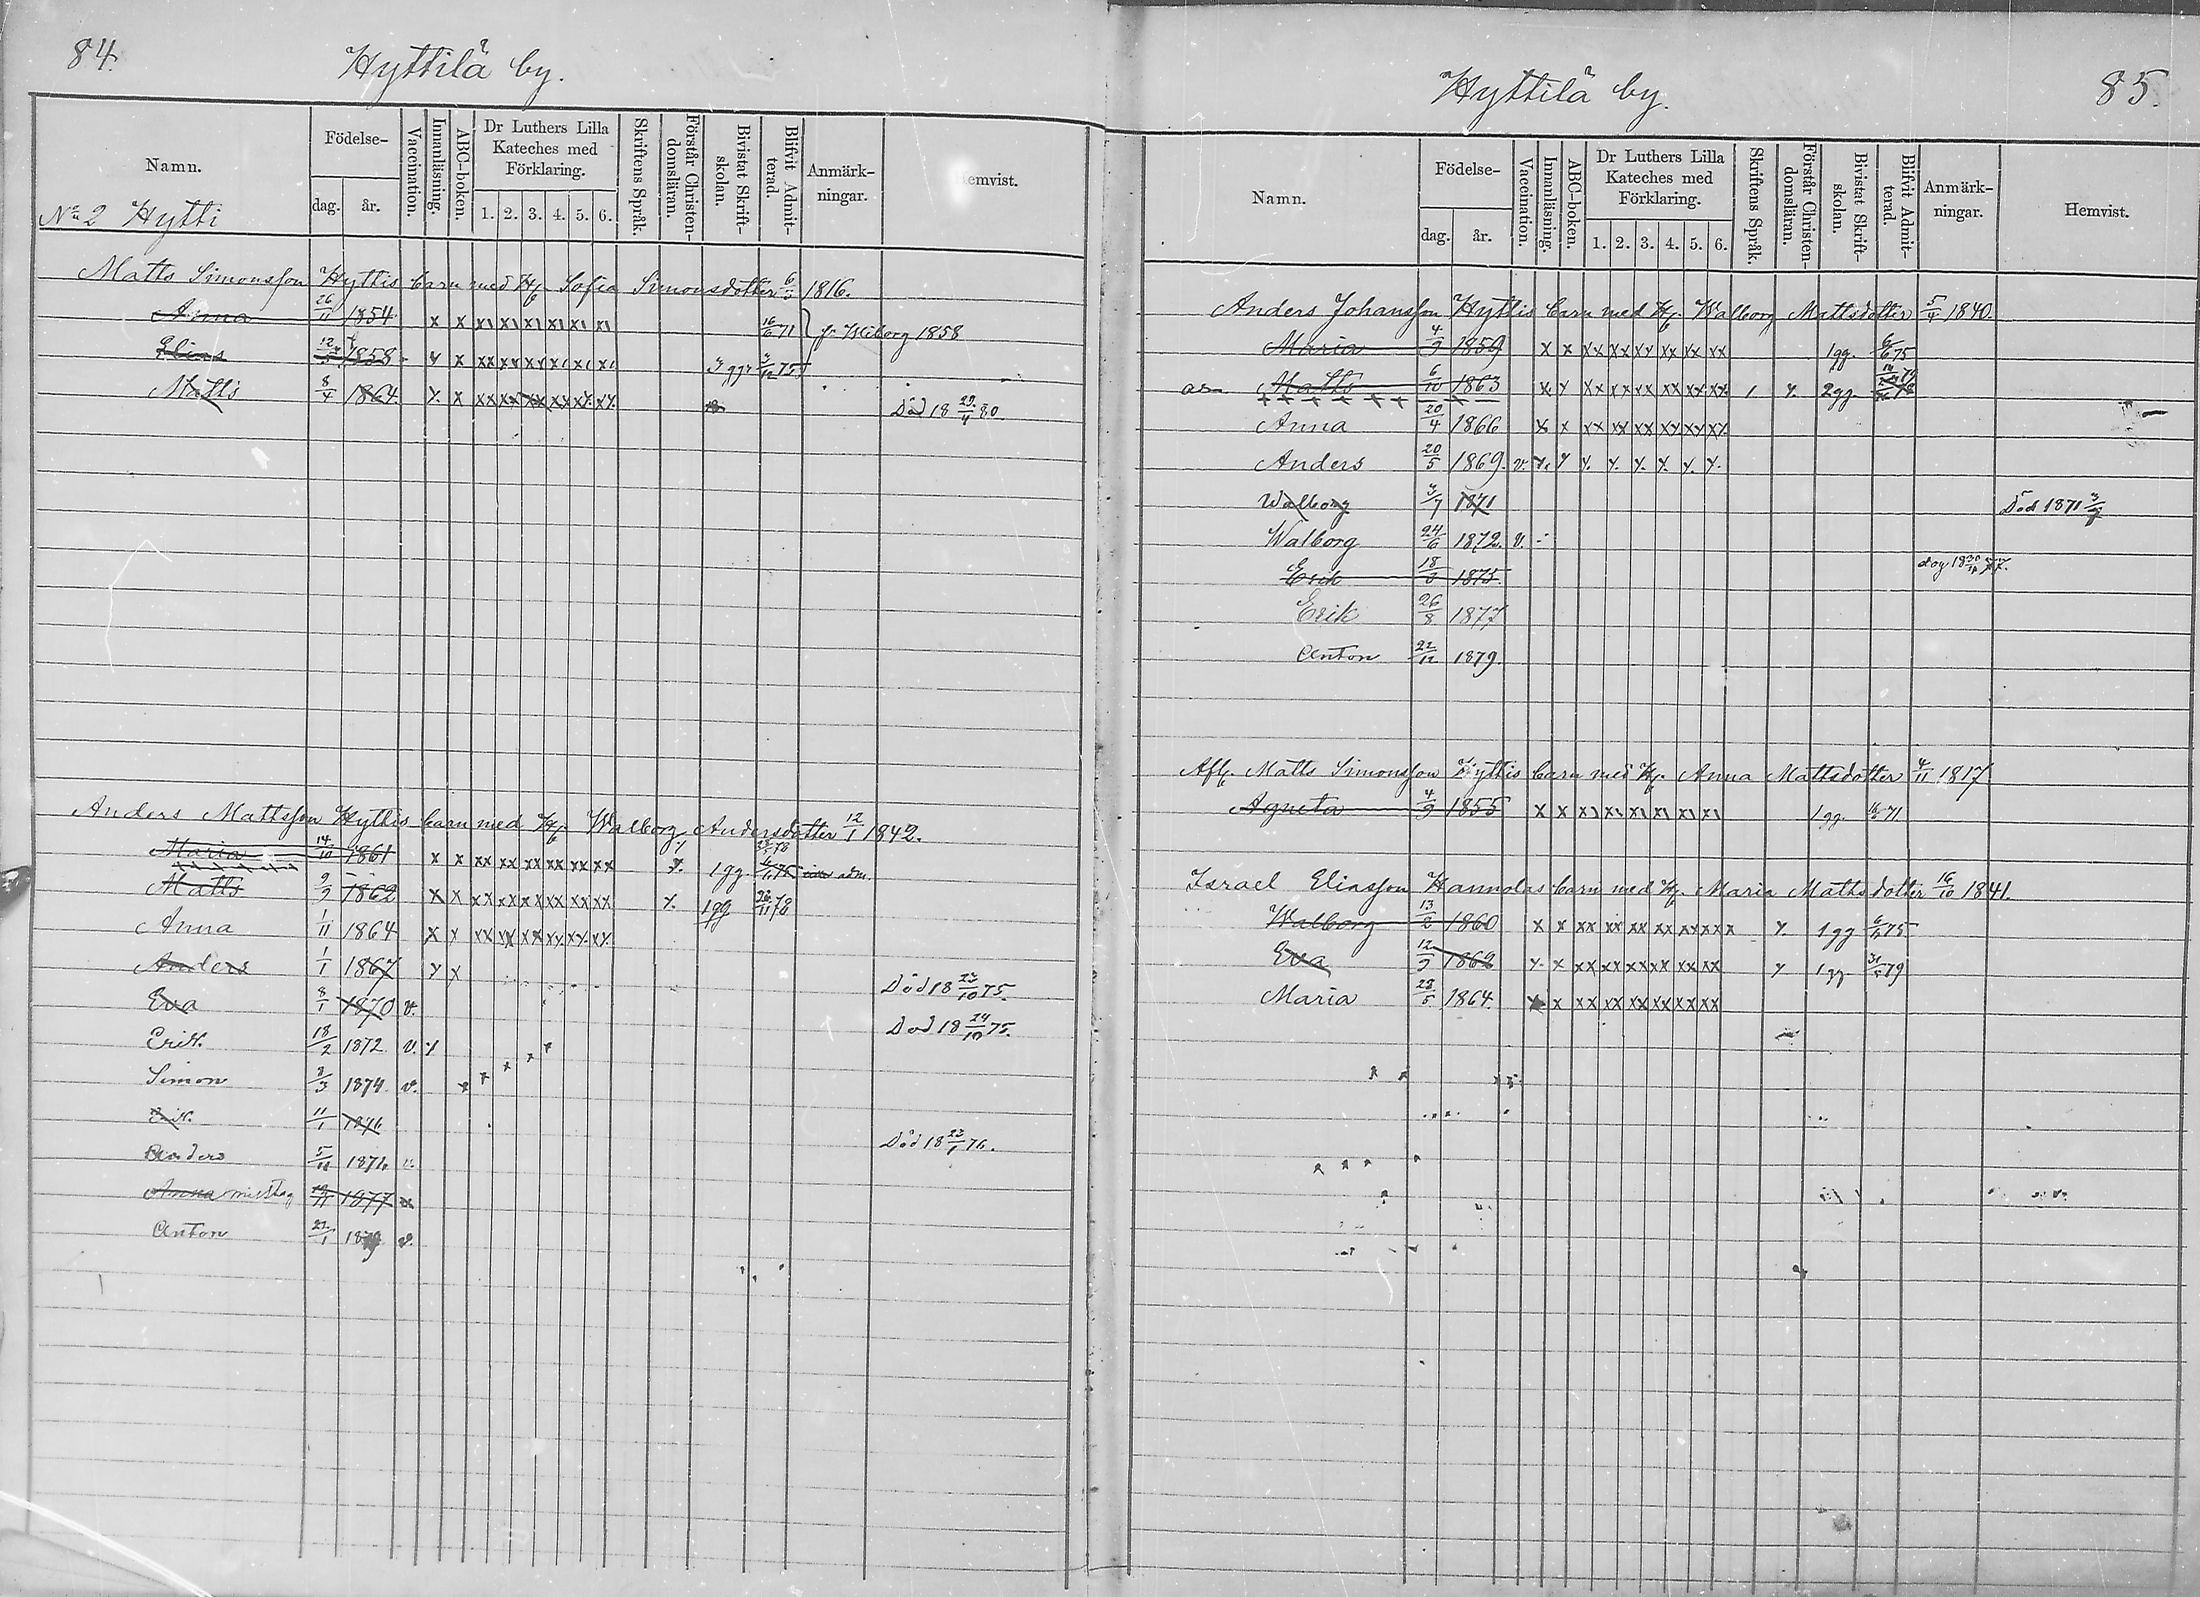 84.
Hyttilä by.
Namn.
Födelse-
dag. år.
Vaccination.
Innanläsning.
ABC-boken.
Dr Luthers Lilla Kateches med Förklaring.
1. 2. 3. 4. 5. 6.
Skriftens Språk.
Förstår Christen-domsläran.
Bivistat Skrift-skolan.
Blifvit Admit-terad.
Anmärk-ningar.
Hemvist.
No 2 Hytti
Matts Simonsson Hyttis barn med Hu Sofia Simonsdotter 6/3 1816.
Anna 26/11 1854 x x x1 x1 x1 x1 x1 x1 16/6 71 fr. Wiborg 1858
Elias 1858 x x xx xx xx x1 x1 x1 3 ggr 75
Matts 8/4 1864 x x xx xx xx xx xx xx Död 18 29/4 80.
Anders Mattsson Hyttis barn med Hu Walborg Andersdotter 12/1 1842.
Maria 14/10 1861 x x xx xx xx xx xx xx x. 1 gg 6/6 75 adm.
Matts 9/9 1862 x x xx xx xx xx xx xx x 1 gg 26/11 78
Anna 1/11 1864 x x xx xx xx xx xx xx
Anders 1/1 1867 x x Död 18 23/10 75.
Eva 8/1 1870 v. Död 18 24/10 75.
Erik 18/2 1872 v. x
Simon 8/3 1874 v.
Erik 11/1 1876 Död 18 23/1 76.
Anders 5/11 1876 v.
Anna misstag 1877
Anton 22/1 1879 v.
85.
Hyttilä by.
Namn.
Födelse-
dag. år.
Vaccination.
Innanläsning.
ABC-boken.
Dr Luthers Lilla Kateches med Förklaring.
1. 2. 3. 4. 5. 6.
Skriftens Språk.
Förstår Christen-domsläran.
Bivistat Skrift-skolan.
Blifvit Admit-terad.
Anmärk-ningar.
Hemvist.
Anders Johansson Hyttis barn med Hu Walborg Mattsdotter 5/4 1840.
Maria 4/9 1859 x x xx xx xx xx xx xx 1 gg. 6/6 75
Matts 6/10 1863 x x xx xx xx xx xx xx 1 x 2 gg.
Anna 20/4 1866 x x xx xx xx xx xx xx
Anders 20/5 1869. v. x x x x x x x x
Walborg 3/7 1871 Död 1871
Walborg 24/6 1872. v.
Erik 1875. dog 18 77.
Erik 26/8 1877
Anton 22/12 1879.
Afl. Matts Simonsson Hyttis barn med Hu Anna Mattsdotter 4/11 1817
Agneta 4/9 1855 x x x1 x1 x1 x1 x1 x1 1 gg. 71
Israel Eliasson Hannolas barn med Hu Maria Mattsdotter 16/10 1841.
Walborg 13/2 1860 x x xx xx xx xx xx xx x. 1 gg 6/6 75
Eva 12/9 1862 x x xx xx xx xx xx xx x 1 gg. 79
Maria 28/5 1864. x x xx xx xx xx xx xx